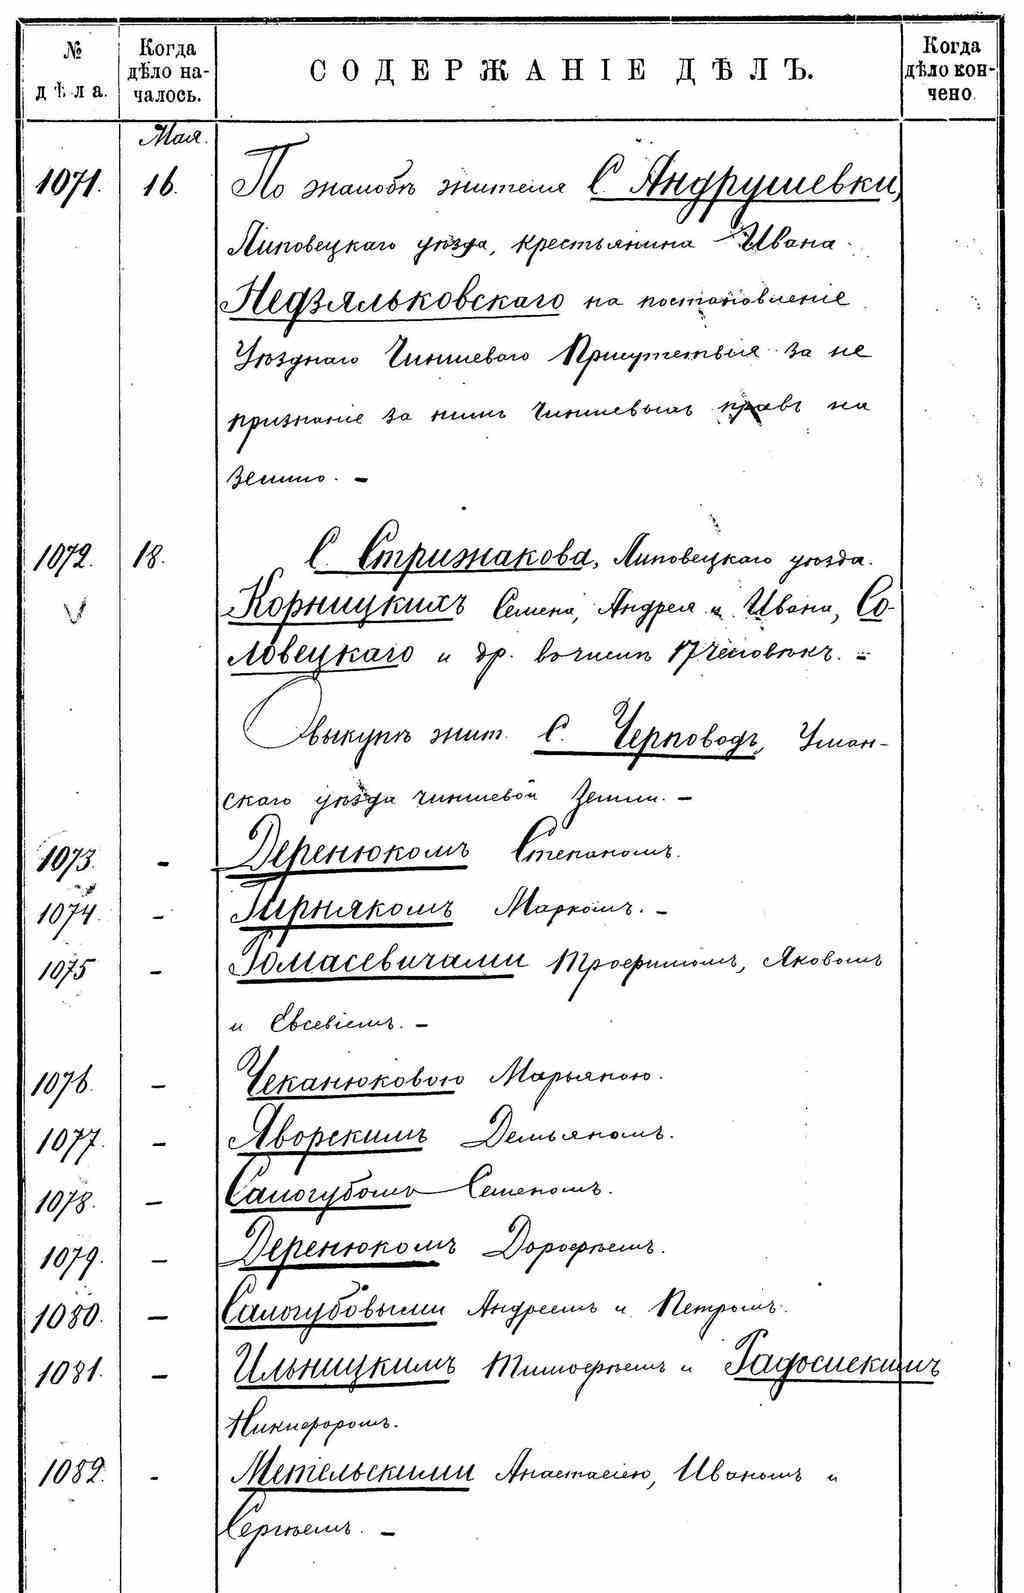 № дѣла.
Когда дѣло началось.
СОДЕРЖАНІЕ ДѢЛЪ.
Когда дѣло кончено.
Мая.
1071. 16. По жалобѣ жителя С. Андрушевки,
Липовецкаго уѣзда, крестьянина Ивана
Недзяльковскаго на постановленіе
Уѣзднаго Чиншеваго Присутствія за не
признаніе за нимъ Чиншевыхъ правъ на
Землю. —
1072. 18. С. Стрижакова, Липовецкаго уѣзда.
Корницкихъ Семена, Андрея и Ивана, Со-
ловецкаго и др. въ числѣ 17 человѣкъ. —
О выкупѣ жит. С. Черповодъ, Уман-
скаго уѣзда чиншевой Земли. —
1073. — Деренюкомъ Степаномъ.
1074. — Гирнякомъ Маркомъ. —
1075 — Томасевичами Трофимомъ, Яковомъ
и Евсевіемъ. —
1076. — Чеканюковою Марьяною.
1077. — Яворскимъ Демьяномъ.
1078. — Самогубомъ Семеномъ.
1079. — Деренюкомъ Дорофѣемъ.
1080. — Самогубовыми Андреемъ и Петромъ.
1081. — Ильницкимъ Тимофѣемъ и
Никифоромъ.
1082. - Метельскими Анастасіею, Иваномъ и
Сергѣемъ. —